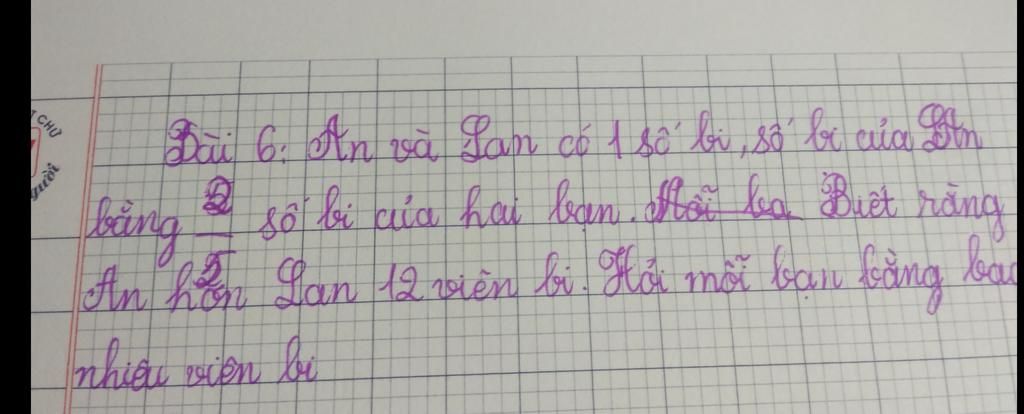 Bài 6: An và Lan có 1 số bi, số bi của An
bằng 2/5 số bi của hai bạn. Biết rằng
An hơn Lan 12 viên bi. Hỏi mỗi bạn bằng bao
nhiêu viên bi